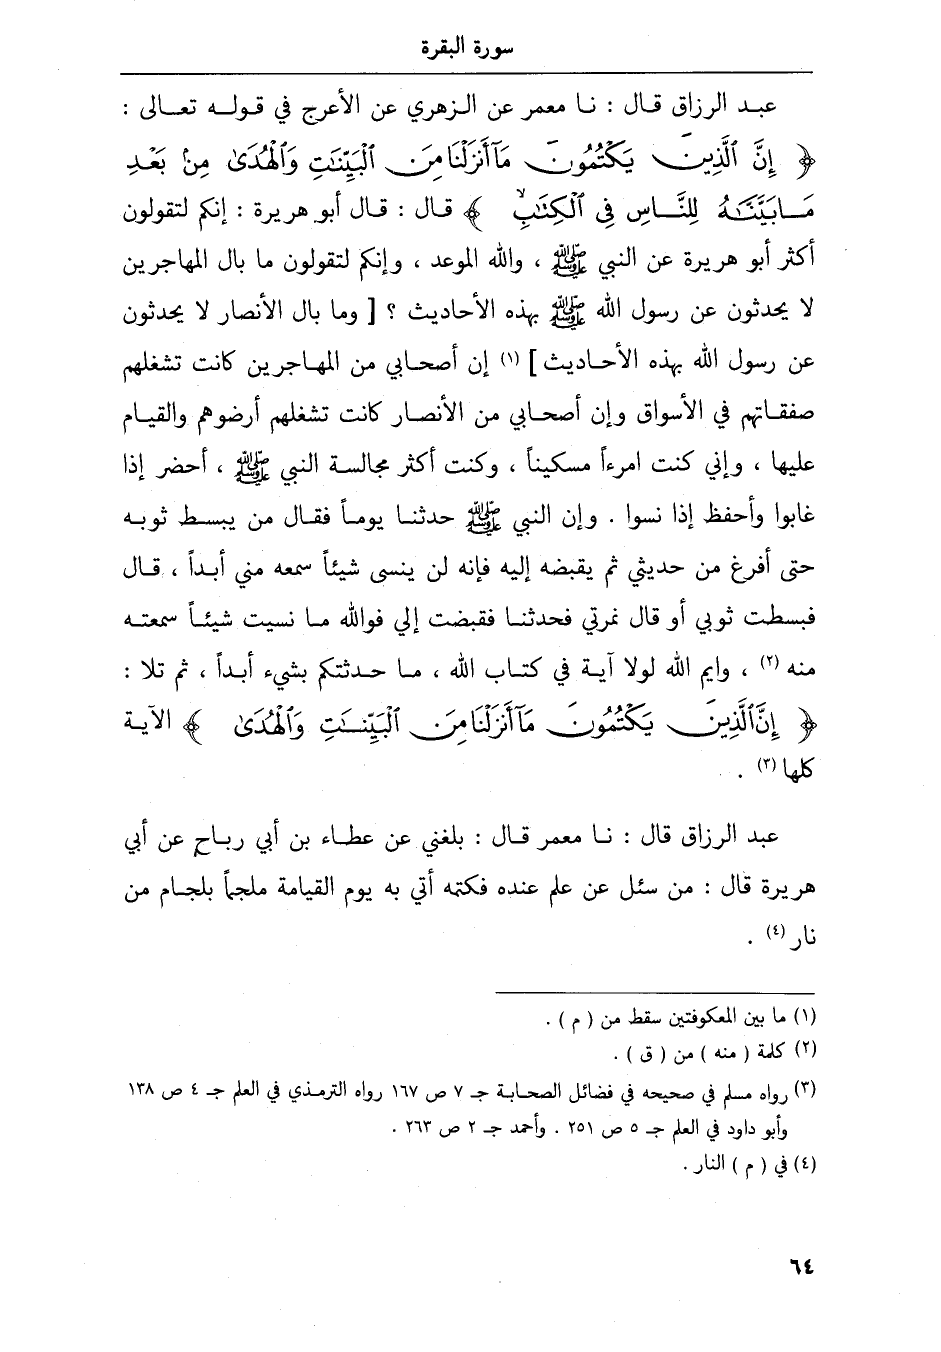 سورة البقرة
عبد الرزاق قال : نا معمر عن الزهري عن الأعرج في قوله تعالى :
﴿ إِنَّ ٱلَّذِينَ يَكْتُمُونَ مَآ أَنزَلْنَا مِنَ ٱلْبَيِّنَٰتِ وَٱلْهُدَىٰ مِنۢ بَعْدِ
مَا بَيَّنَّٰهُ لِلنَّاسِ فِى ٱلْكِتَٰبِ ﴾ قال : قال أبو هريرة : إنكم لتقولون
أكثر أبو هريرة عن النبي ﷺ ، والله الموعد ، وإنكم لتقولون ما بال المهاجرين
لا يحدثون عن رسول الله ﷺ بهذه الأحاديث ؟ [ وما بال الأنصار لا يحدثون
عن رسول الله بهذه الأحاديث ] (١) إن أصحابي من المهاجرين كانت تشغلهم
صفقاتهم في الأسواق وإن أصحابي من الأنصار كانت تشغلهم أرضوهم والقيام
عليها ، وإني كنت امرءاً مسكيناً ، وكنت أكثر مجالسة النبي ﷺ ، أحضر إذا
غابوا وأحفظ إذا نسوا . وإن النبي ﷺ حدثنا يوماً فقال من يبسط ثوبه
حتى أفرغ من حديثي ثم يقبضه إليه فإنه لن ينسى شيئاً سمعه مني أبداً ، قال
فبسطت ثوبي أو قال نمرتي فحدثنا فقبضت إلي فوالله ما نسيت شيئاً سمعته
منه (٢) ، وايم الله لولا آية في كتاب الله ، ما حدثتكم بشيء أبداً ، ثم تلا :
﴿ إِنَّ ٱلَّذِينَ يَكْتُمُونَ مَآ أَنزَلْنَا مِنَ ٱلْبَيِّنَٰتِ وَٱلْهُدَىٰ ﴾ الآية
كلها (٣) .
عبد الرزاق قال : نا معمر قال : بلغني عن عطاء بن أبي رباح عن أبي
هريرة قال : من سئل عن علم عنده فكتمه أتي به يوم القيامة ملجماً بلجام من
نار (٤) .
(١) ما بين المعكوفتين سقط من ( م ) .
(٢) كلمة ( منه ) من ( ق ) .
(٣) رواه مسلم في صحيحه في فضائل الصحابة جـ ٧ ص ١٦٧ رواه الترمذي في العلم جـ ٤ ص ١٣٨
وأبو داود في العلم جـ ٥ ص ٢٥١ . وأحمد جـ ٢ ص ٢٦٣ .
(٤) في ( م ) النار .
٦٤